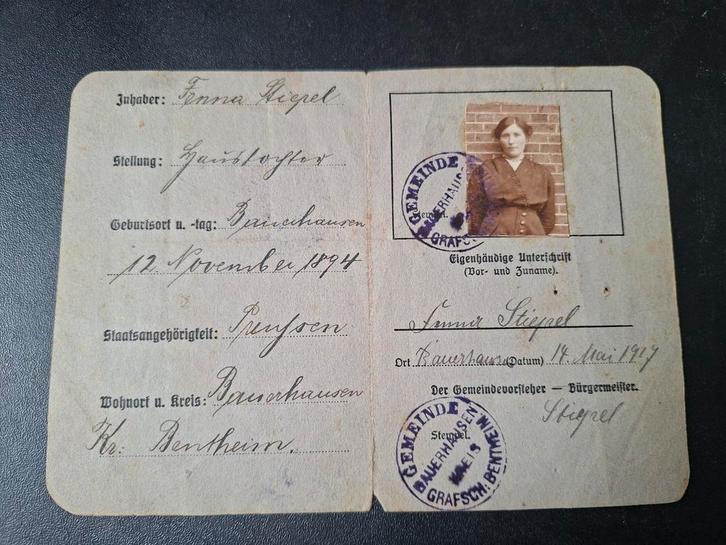 Inhaber: Fenna Stiepel
Stellung: Haustochter
Geburtsort u. -tag: Bauerhausen
12. November 1894
Staatsangehörigkeit: Preußen
Wohnort u. Kreis: Bauerhausen
Kr: Bentheim.
GEMEINDE
BAUERHAUSEN
GRAFSCH:
Stempel.
Eigenhändige Unterschrift
(Vor- und Zuname).
Fenna Stiepel
Ort Bauerhausen (Datum) 14. Mai 1917
Der Gemeindevorsteher — Bürgermeister.
Stiepel
Stempel.
GEMEINDE
BAUERHAUSEN
KREIS
GRAFSCH: BENTHEIM